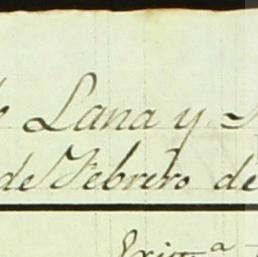 Lana y
de Febrero de